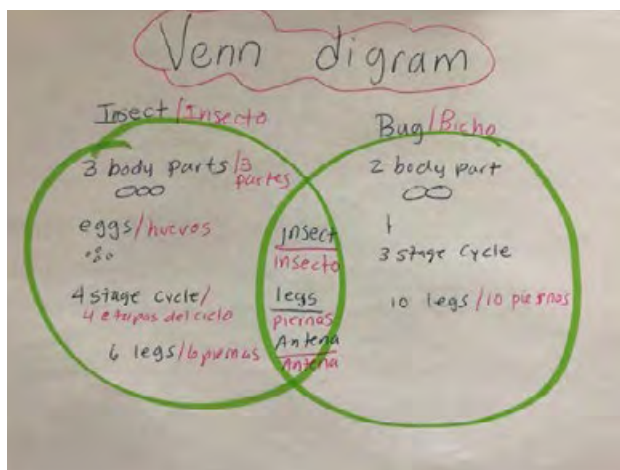 Venn digram
Insect/Insecto
3 body parts/3
partes
eggs/huevos
4 stage cycle/
4 etapas del ciclo
6 legs/6 piernas
insect
insecto
legs
piernas
Antena
Antena
Bug/Bicho
2 body part
3 stage cycle
10 legs/10 piernas